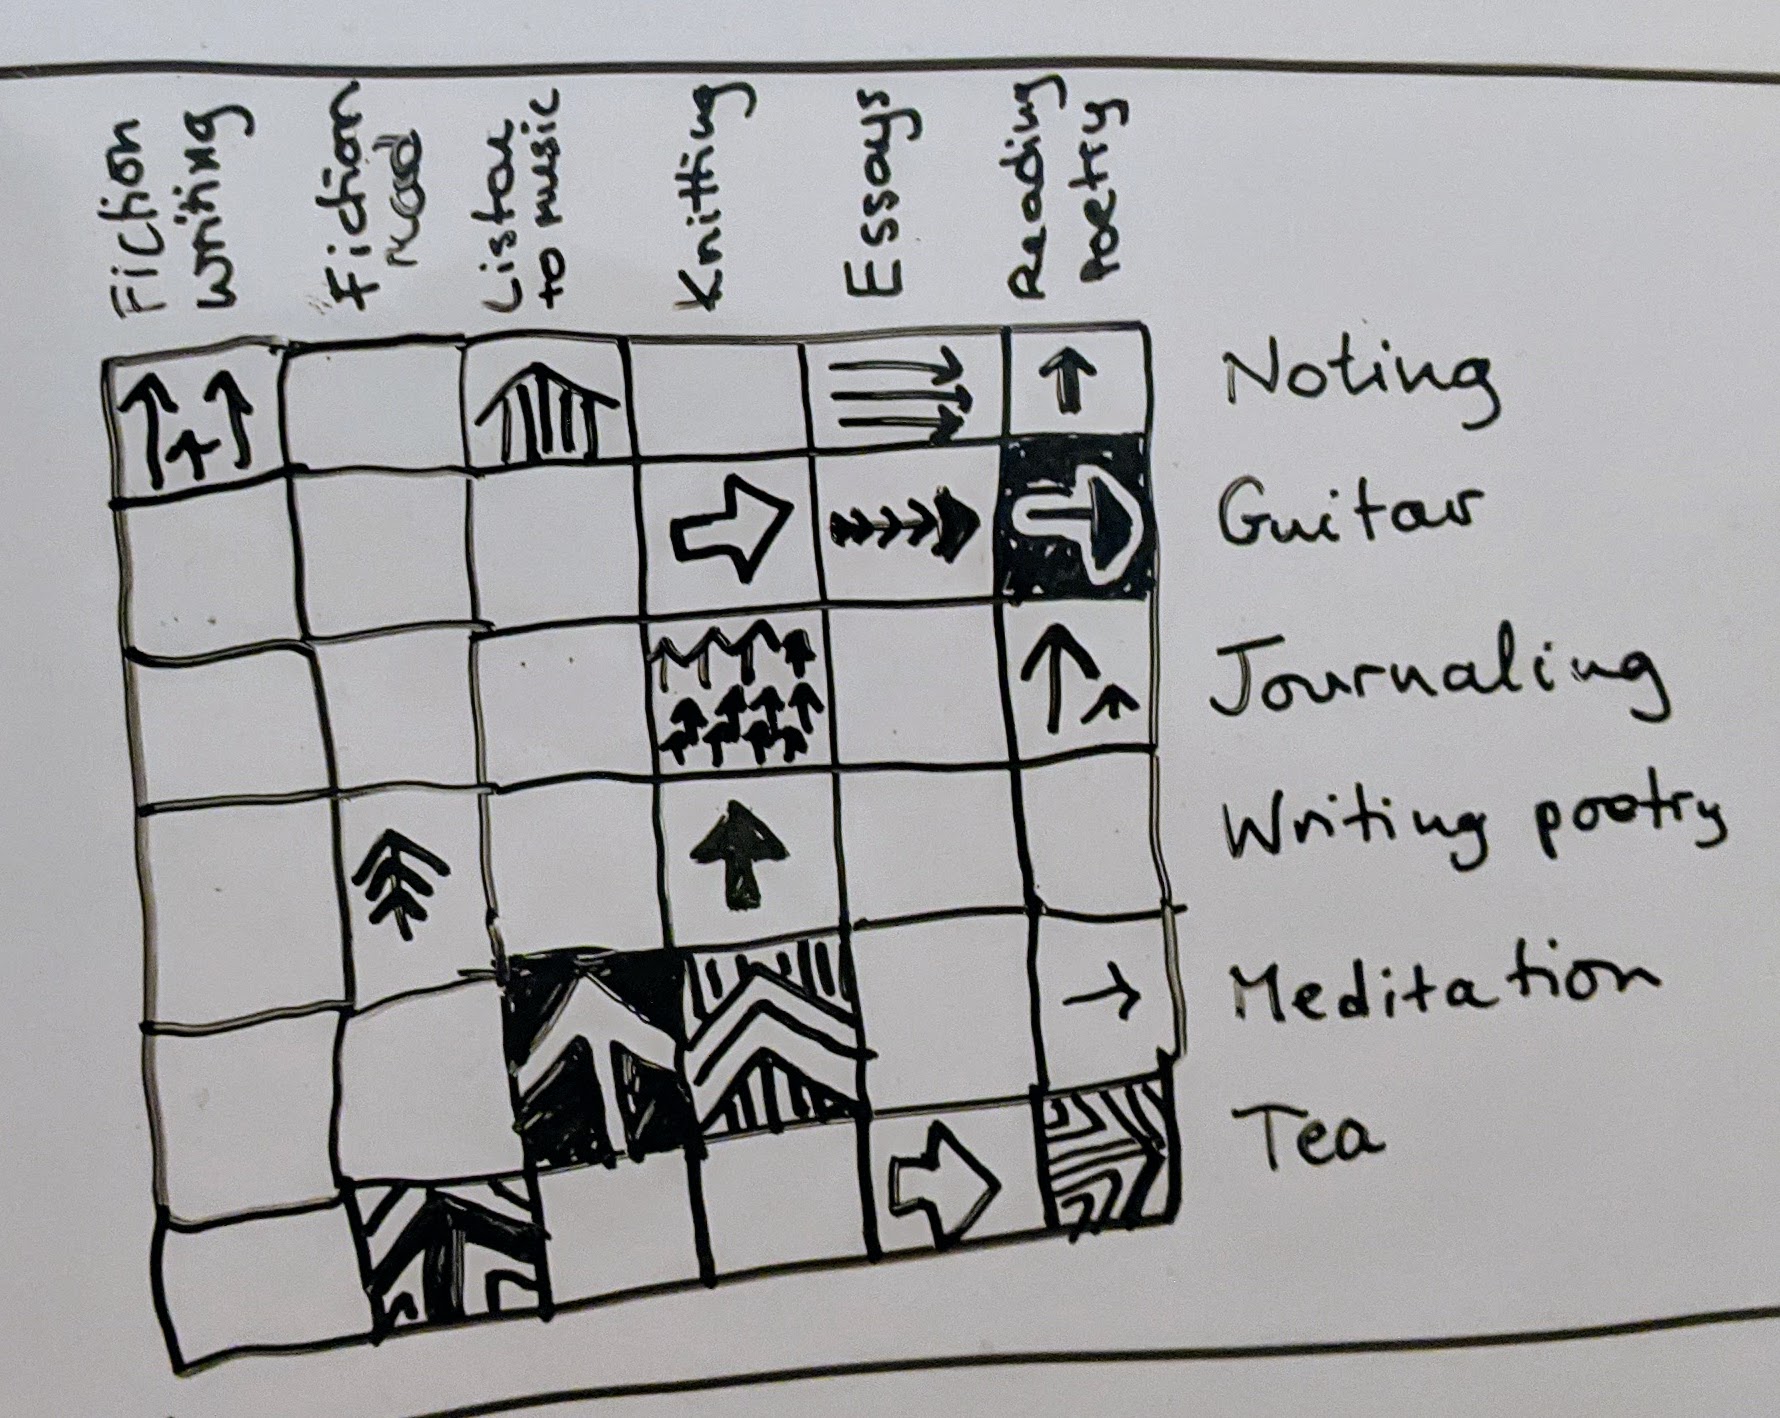 Fiction
writing
Fiction
read
Listen
to music
Knitting
Essays
Reading
poetry
Noting
Guitar
Journaling
Writing poetry
Meditation
Tea